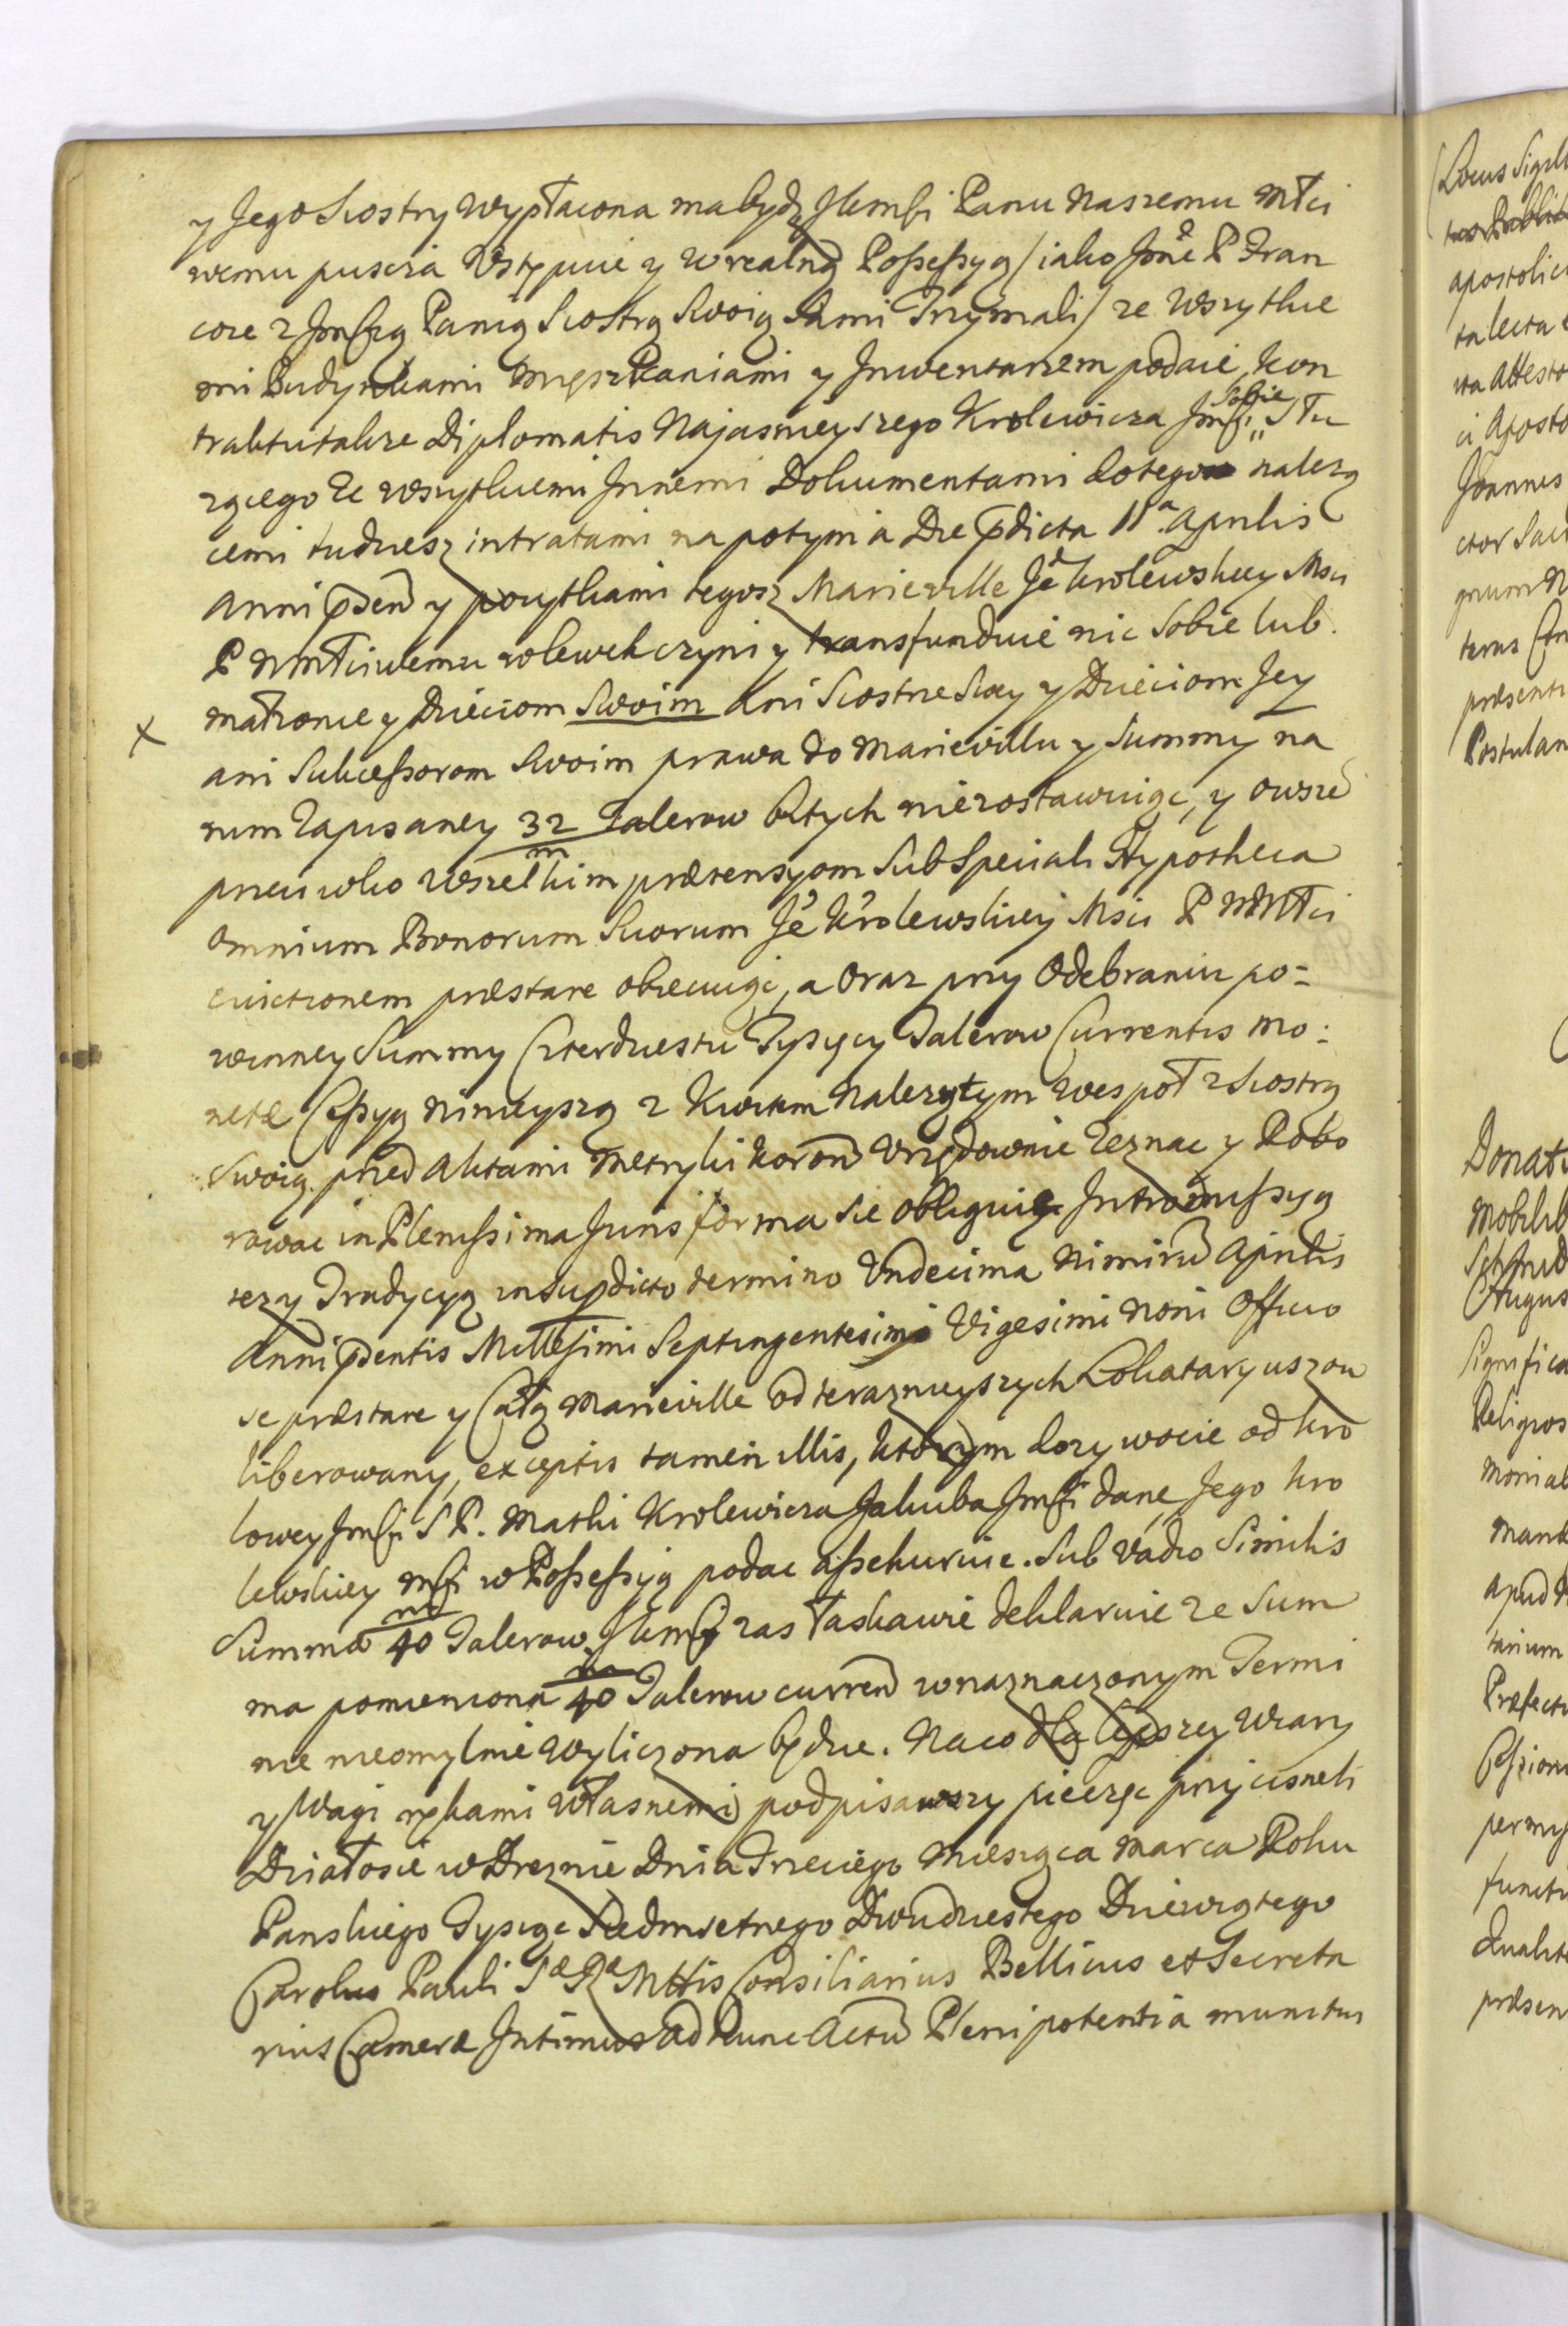 y Jego Siostry wypłacona ma bydz JKmsci Panu Naszemu Młci
wemu puscza Ustępuie y w realną Possessyą / iako Jmć P Fran
coze z Jmscią Panią Siostrą Swoią Sami Trzymali / ze wszytkie
mi Budynkami Mięszkaniami y Jnwentarzem podaie, kon
traktu takze Diplomatis Najasnieyszego Krolewicza Jmsci Sobie Słu
zącego Ze wszytkiemi Jnnemi Dokumentami do tego nalezą
cemi tudziesz intratami na potym a Die pdicta 11a Aprilis
Anni psen y pozytkami tegosz Marieville Jẽ Krolewskiey Msci
P NMłciwemu wlewek czyni y transfunduie nic Sobie lub
Małzonce y Dzieciom Swoim Ani Siostrze Swey y Dzieciom Jey
ani Sukcessorom Swoim prawa do Marievillu y Summy na
num Zapisaney 32 m Talerow bitych niezostawuiąc, y owsze
przeciwko wszelkim prætensyom Sub Speciali Hypotheca
omnium Bonorum Suorum Jẽ Krolewskiey Msci P NMłci
evictionem præstare obiecuiąc, a Oraz przy Odebraniu po=
winney Summy Czterdziestu Tysięcy Talerow Currentis Mo=
netæ Cessyą ninieyszą z Kwitem Nalezytym wespoł z Siostrą
Swoią przed Aktami Metryki Koron Urzędownie Zeznac y Robo
rowac in Plenissima Juris forma Sie obliguię Jntromissyą
tezy Tradycyą in Supdicto termino Undecima Nimirũ Aprilis
Anni psentis Millesimi Septingentesimi Vigesimi Noni Officio
se præstare y Całą Marieville od teraznieyszych Lokataryuszow
liberowany, exceptis tamen illis, ktorym dozywocie od Kro
lowey Jmsci S P. Matki Krolewicza Jakuba Jmsci dane, Jego Kro
lewskiey Msci w Possessyią podac assekuruie. Sub Vadio Similis
Summæ 40 m Talerow. JKmsc zas Łaskawie deklaruie ze Sum
ma pomieniona 40 m Talerow curren w naznaczonym Termi
nie nieomylnie wyliczona będzie. Na co dla lepszey Wiary
y Wagi rękami Własnemi podpisawszy pieczęc przycisneli
Działosie w Dreznie Dnia Trzeciego Miesiąca Marca Roku
Panskiego Tysiąc Siedmsetnego Dwudziestego Dziewiątego
Carolus Pauli Sæ Ræ Mttis Consiliarius Bellicus et Secreta
rius Cameræ Jntimus ad hunc Actũ Plenipotentia munitus
x
(Locus Sigil
apostolic
ta lecta
ta Attesto
ci Aposto
Joannes
ctor Sac
gnum N
terus
præsenti
Postulan
Donat
Mobilib
Augus
Significa
Religios
Monial
Mank
Apud
tarium
Præfect
Cession
permis
functi
Qualit
præsen